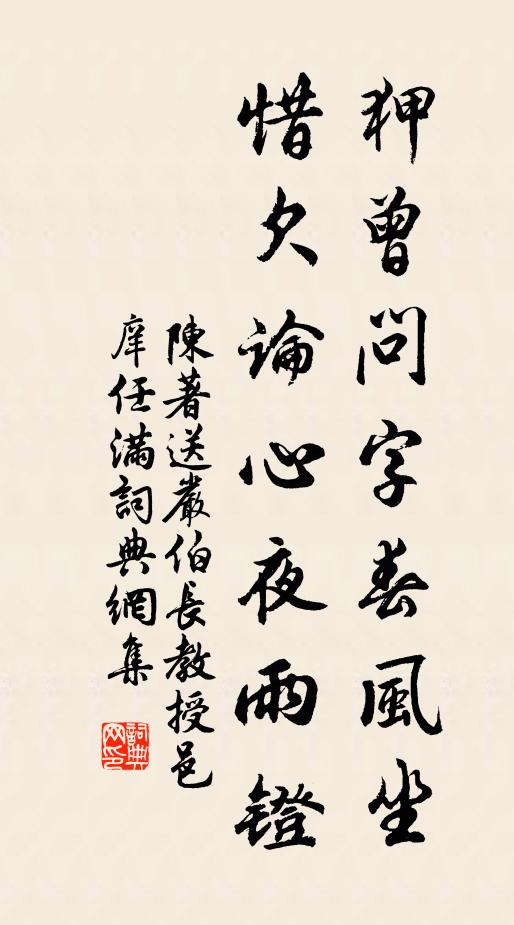 狎曾問字春風坐
惜欠論心夜雨鐙
陳著送嚴伯長教授邑
庠任滿詞典網集
詞典網印